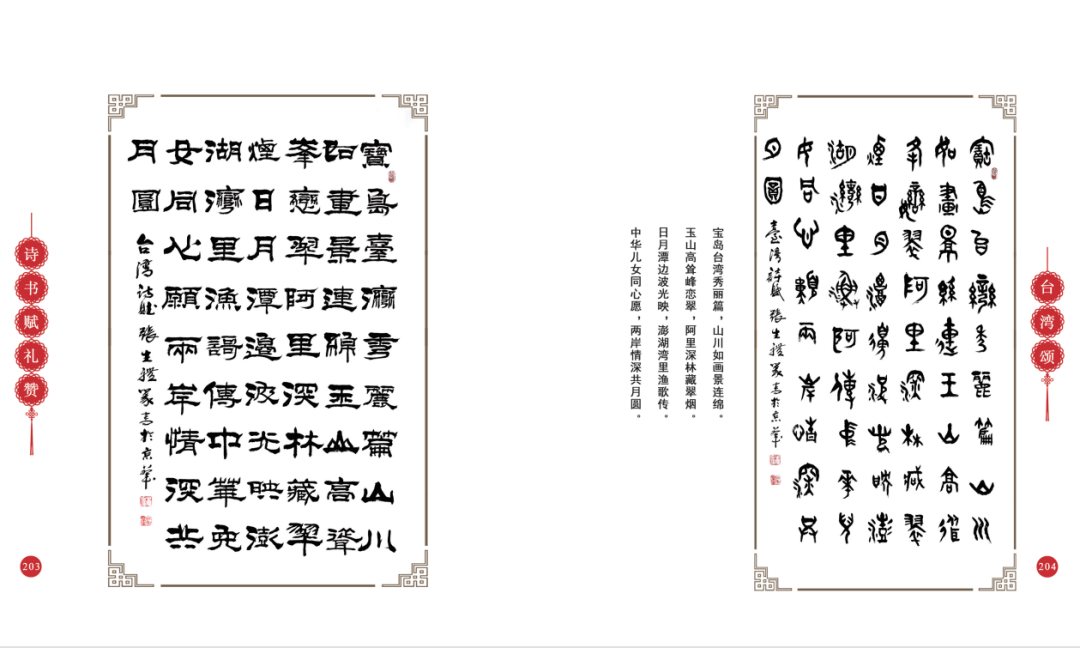 诗书赋礼赞
203
寶島臺灣秀麗篇山川
如畫景連綿玉山高聳
峯戀翠阿里深林藏翠
煙日月潭邊波光映澎
湖灣里漁謌傳中華兒
女同心願兩岸情深共
月圓
台湾诗赋張生禮篆書於京華
寶島台灣秀麗篇山川
如畫景綿連玉山高聳
峰戀翠阿里深林藏翠
煙日月潭邊波光映澎
湖灣里漁歌傳中華兒
女同心願兩岸情深共
月圓
臺湾詩賦張生禮篆書於京華
宝岛台湾秀丽篇，山川如画景连绵。
玉山高耸峰恋翠，阿里深林藏翠烟。
日月潭边波光映，澎湖湾里渔歌传。
中华儿女同心愿，两岸情深共月圆。
台湾颂
204